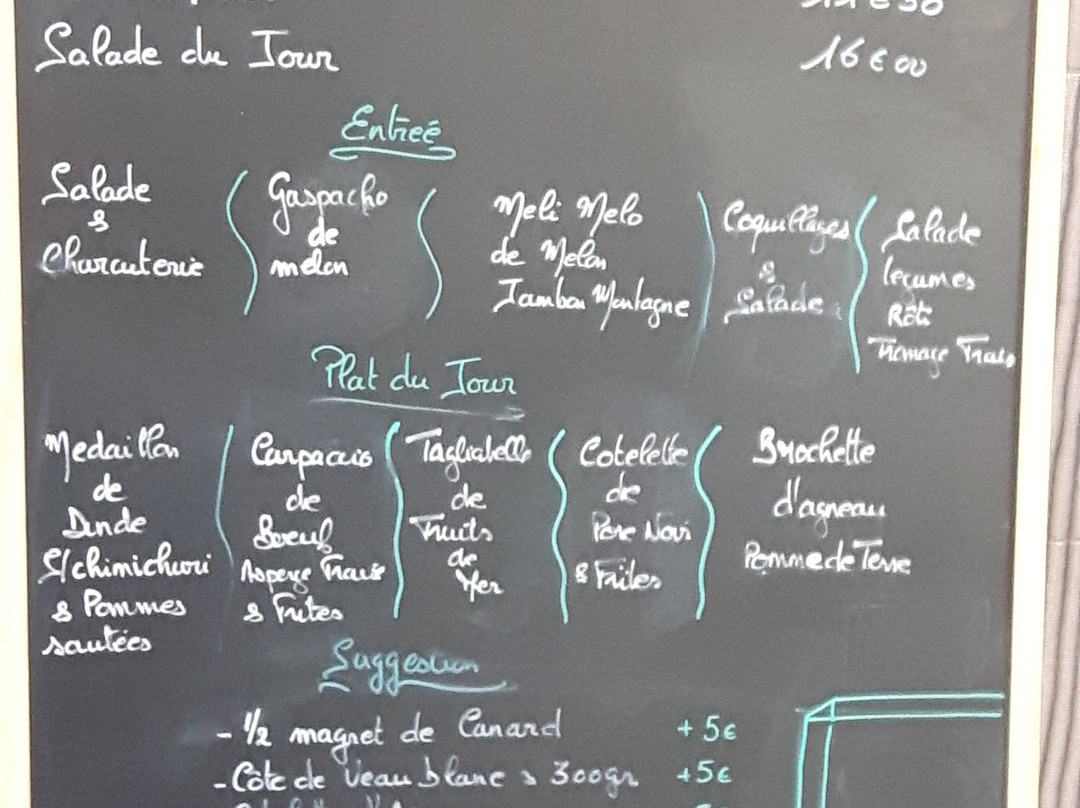 11€50
Salade du Jour 16€00
Entreé
Salade
&
Charcuterie
Gaspacho
de
melon
Meli Melo
de Melon
Jambon Montagne
Coquillages
&
Salade
Salade
leçumes
Rôti
Fromage Frais
Plat du Jour
Medaillon
de
Dinde
S/chimichuri
& Pommes
sautées
Carpaccio
de
Boeuf
Asperge Frais
& Frites
Tagliatelle
de
Fruits
de
Mer
Cotelette
de
Porc Noir
& Frites
Brochette
d'agneau
Pomme de Terre
Suggestion
- 1/2 magret de Canard +5€
- Côte de Veau blanc 300gr +5€